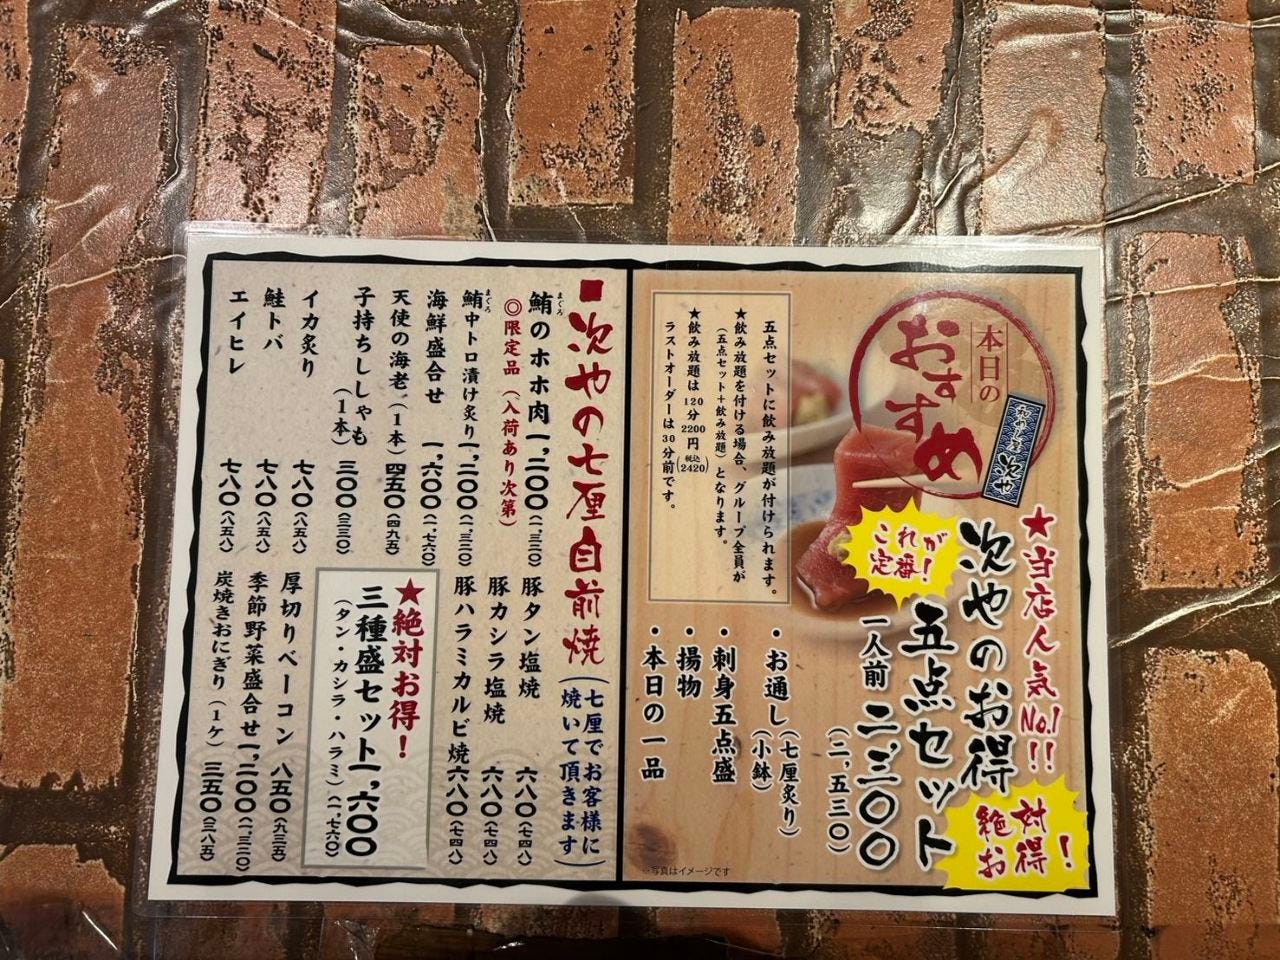 本日の
おすすめ
次や
★当店人気No.1!!
次やのお得
五点セット
これが
定番!
絶対
お得!
一人前 二、三〇〇
(二、五三〇)
・お通し(七厘炙り)
(小鉢)
・刺身五点盛
・揚物
・本日の一品
五点セットに飲み放題が付けられます。
★飲み放題を付ける場合、グループ全員が
(五点セット+飲み放題)となります。
★飲み放題は120分2200円(税込2420)
ラストオーダーは30分前です。
※写真はイメージです
■次やの七厘自前焼(七厘でお客様に焼いて頂きます)
鮪のホホ肉 一、二〇〇(一、三二〇)
まぐろ
◎限定品(入荷あり次第)
鮪中トロ漬け炙り 一、二〇〇(一、三二〇)
まぐろ
海鮮盛合せ 一、六〇〇(一、七六〇)
天使の海老(1本) 四五〇(四九五)
子持ちししゃも(1本) 三〇〇(三三〇)
イカ炙り 七八〇(八五八)
鮭トバ 七八〇(八五八)
エイヒレ 七八〇(八五八)
豚タン塩焼 六八〇(七四八)
豚カシラ塩焼 六八〇(七四八)
豚ハラミカルビ焼 六八〇(七四八)
★絶対お得!
三種盛セット 一、六〇〇
(タン・カシラ・ハラミ)(一、七六〇)
厚切りベーコン 八五〇(九三五)
季節野菜盛合せ 一、二〇〇(一、三二〇)
炭焼きおにぎり(1ケ) 三五〇(三八五)